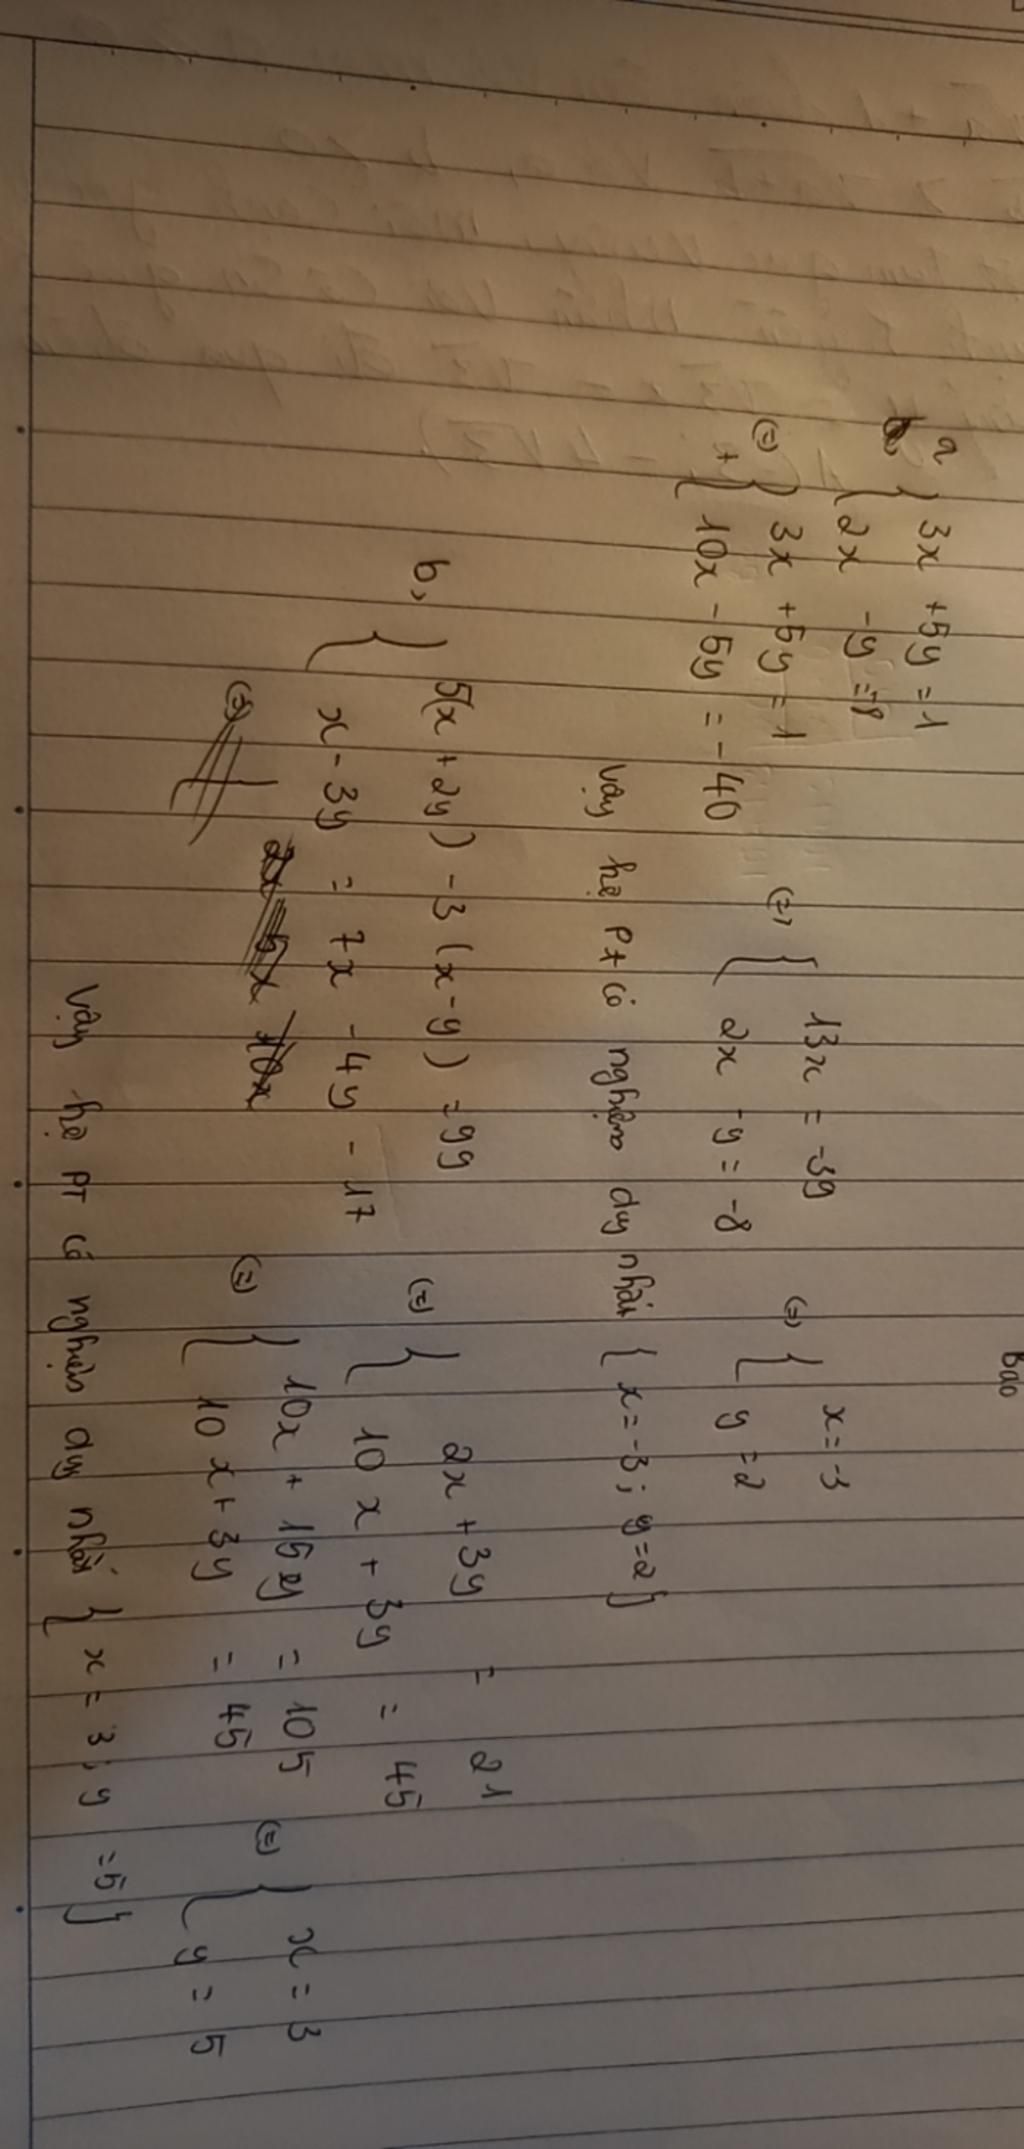 Bao
a { 3x + 5y = 1
b, { 2x - y = -8
(=) { 3x + 5y = 1
+ { 10x - 5y = -40
(=) { 13x = -39
{ 2x - y = -8
(=) { x = -3
{ y = 2
Vậy hệ Pt có nghiệm duy nhất { x = -3 ; y = 2 }
b, { 5(x + 2y) - 3(x - y) = 99
{ x - 3y = 7x - 4y - 17
(=)
(=) { 2x + 3y = 21
{ 10x + 3y = 45
(=) { 10x + 15y = 105
{ 10x + 3y = 45
(=) { x = 3
{ y = 5
Vậy hệ PT có nghiệm duy nhất { x = 3 ; y = 5 }